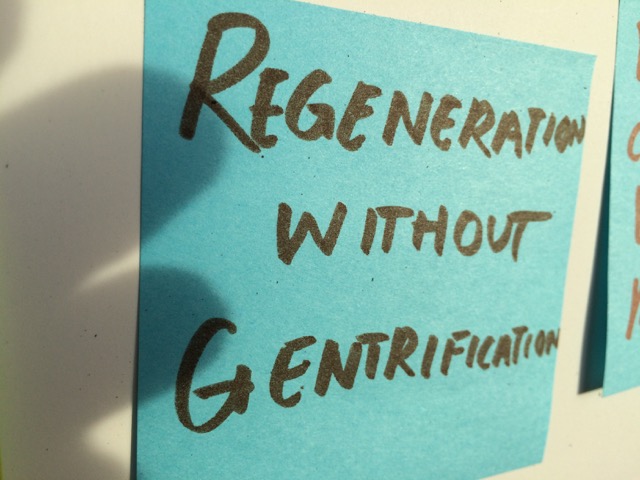 REGENERATION
WITHOUT
GENTRIFICATION